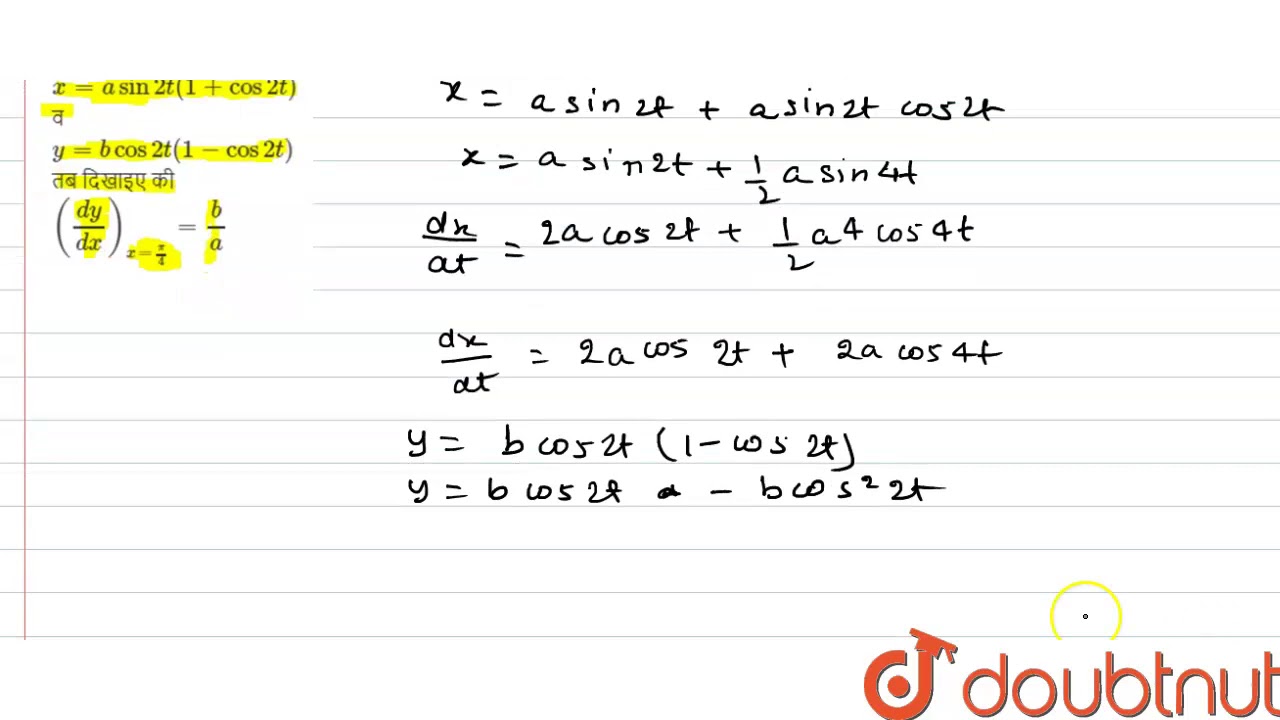 x = a sin 2t(1 + cos 2t)
व
y = b cos 2t(1 − cos 2t)
तब दिखाइए की
(dy/dx)_{x=π/4} = b/a
x = a sin 2t + a sin 2t cos 2t
x = a sin 2t + 1/2 a sin 4t
dx/dt = 2a cos 2t + 1/2 a 4 cos 4t
dx/dt = 2a cos 2t + 2a cos 4t
y = b cos 2t (1 - cos 2t)
y = b cos 2t - b cos² 2t
doubtnut